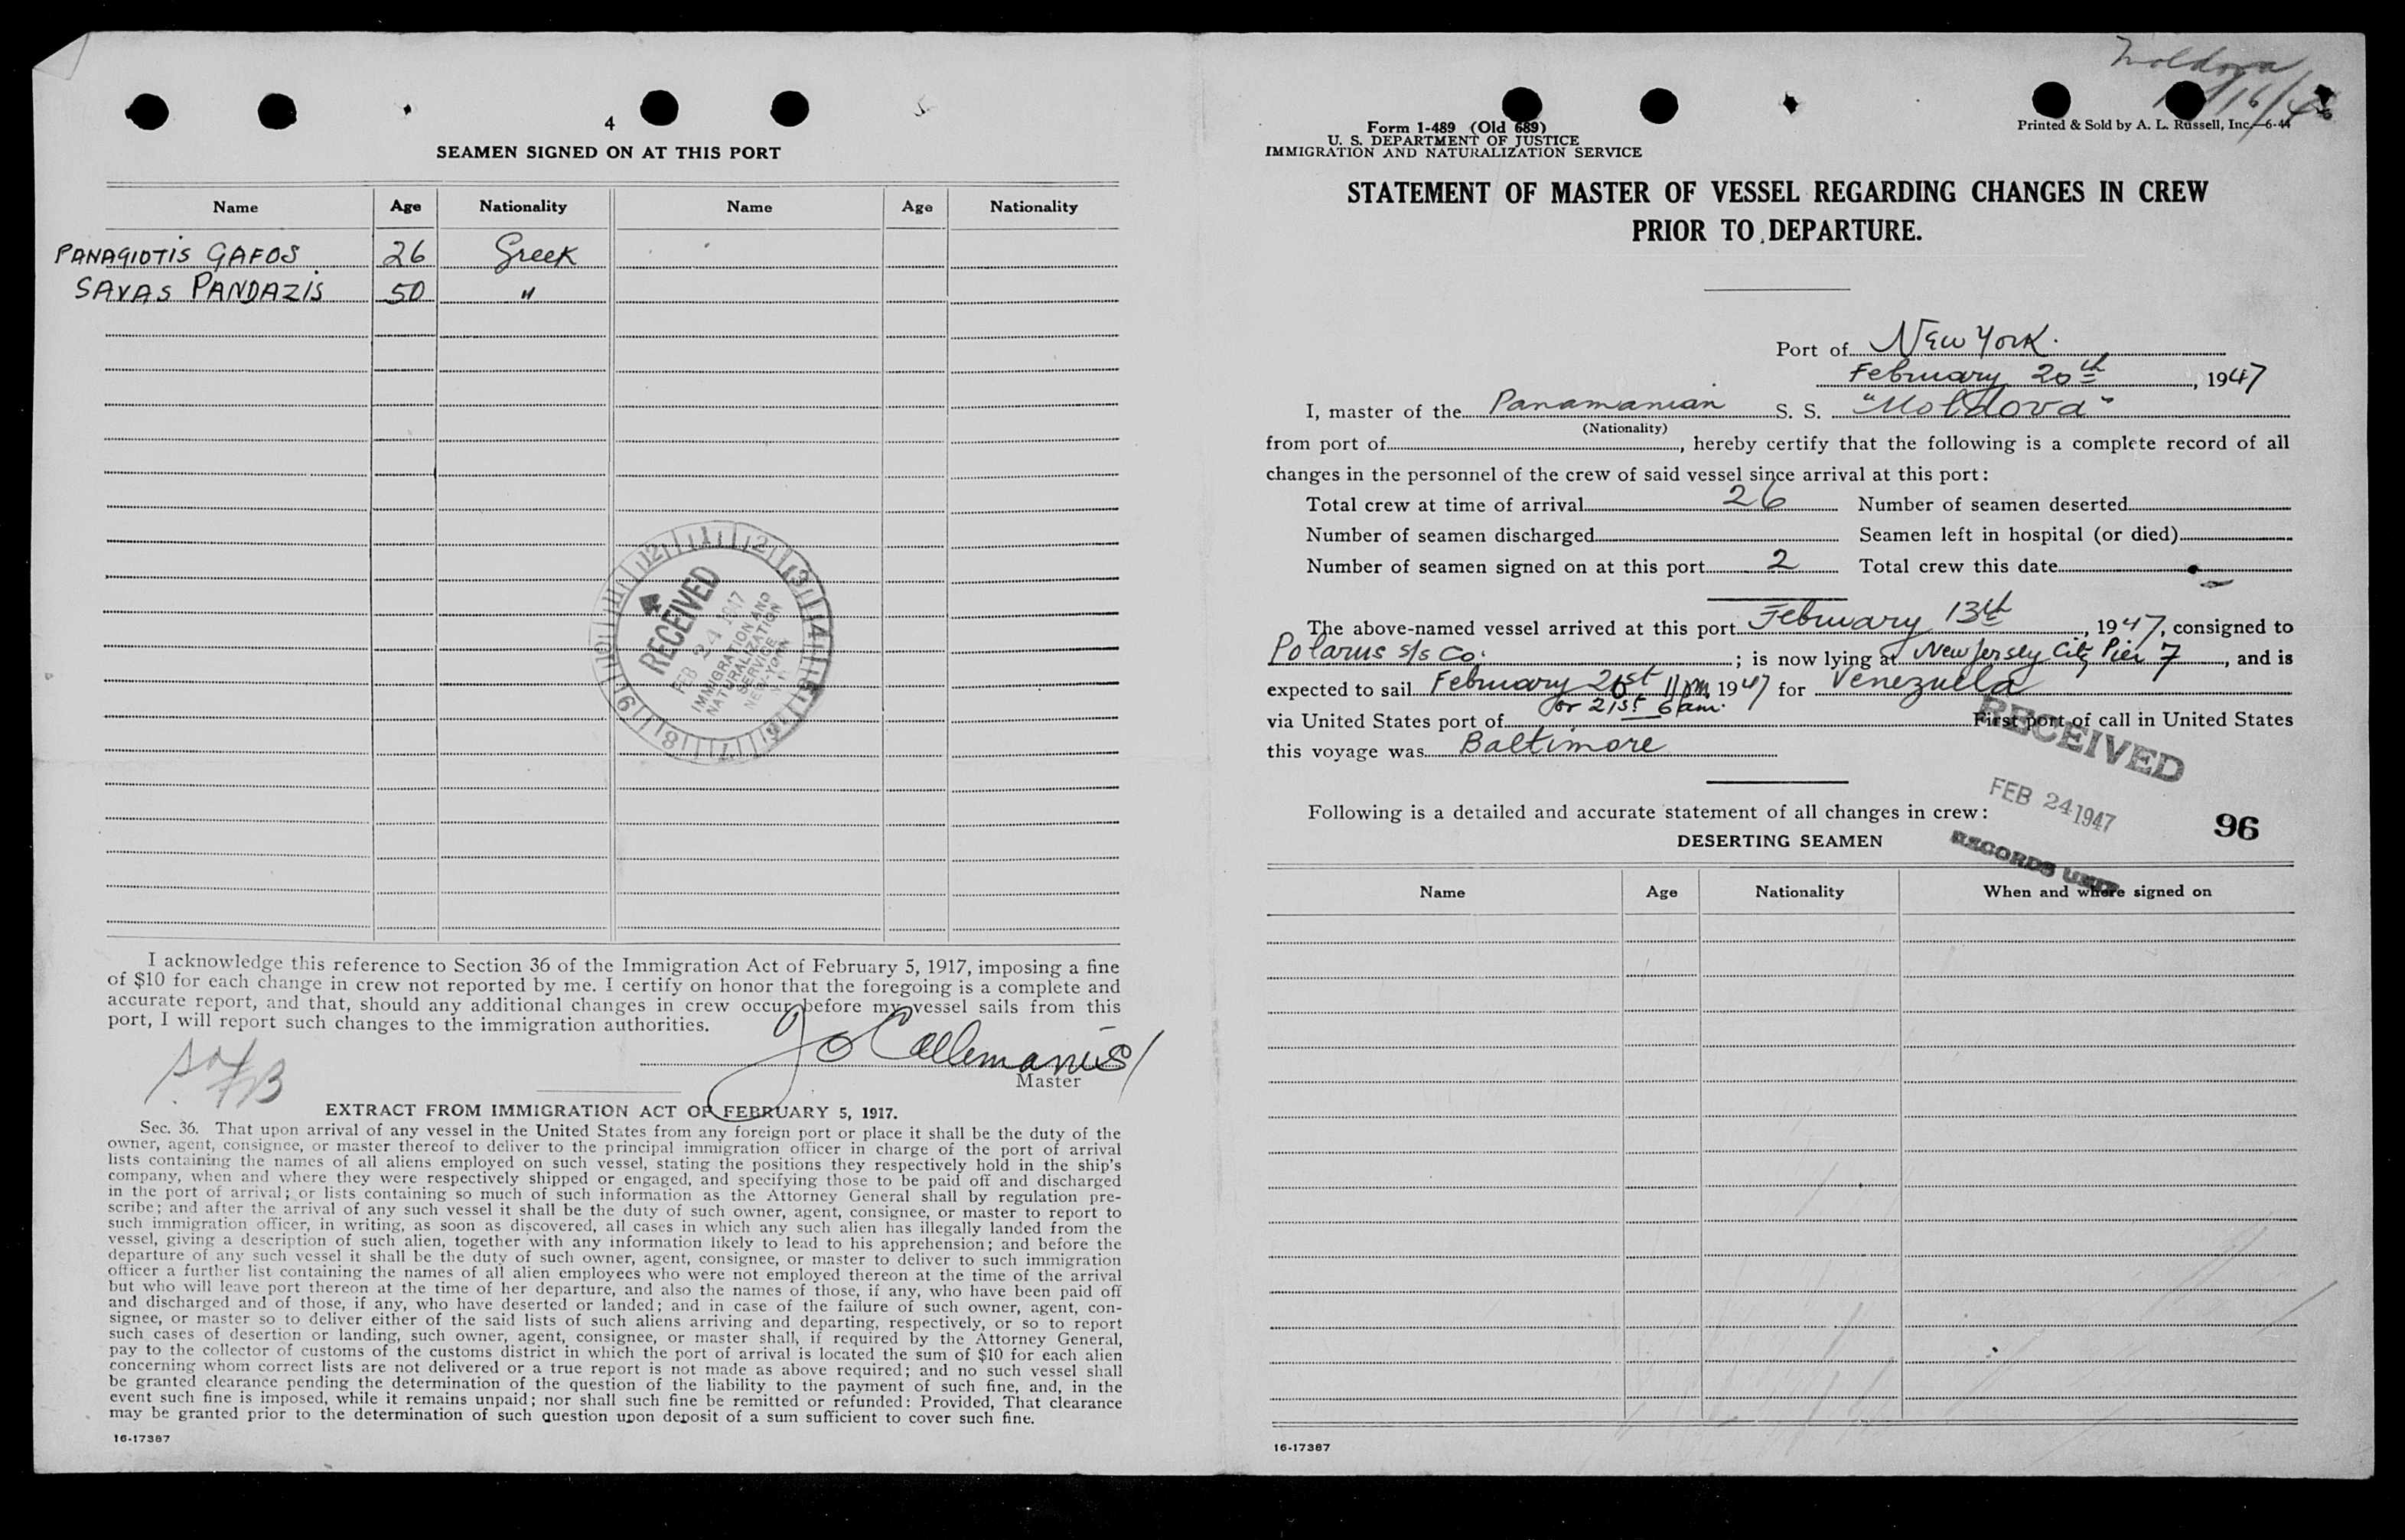 4
SEAMEN SIGNED ON AT THIS PORT
Name Age Nationality Name Age Nationality
PANAGIOTIS GAFOS 26 Greek
SAVAS PANDAZIS 50 "
12 1 2 3 4 5 6 7 8 9 10 11
RECEIVED
FEB 24 1947
IMMIGRATION AND
NATURALIZATION
SERVICE
NEW YORK
N.Y.
I acknowledge this reference to Section 36 of the Immigration Act of February 5, 1917, imposing a fine
of $10 for each change in crew not reported by me. I certify on honor that the foregoing is a complete and
accurate report, and that, should any additional changes in crew occur before my vessel sails from this
port, I will report such changes to the immigration authorities.
Master
EXTRACT FROM IMMIGRATION ACT OF FEBRUARY 5, 1917.
Sec. 36. That upon arrival of any vessel in the United States from any foreign port or place it shall be the duty of the
owner, agent, consignee, or master thereof to deliver to the principal immigration officer in charge of the port of arrival
lists containing the names of all aliens employed on such vessel, stating the positions they respectively hold in the ship's
company, when and where they were respectively shipped or engaged, and specifying those to be paid off and discharged
in the port of arrival; or lists containing so much of such information as the Attorney General shall by regulation pre-
scribe; and after the arrival of any such vessel it shall be the duty of such owner, agent, consignee, or master to report to
such immigration officer, in writing, as soon as discovered, all cases in which any such alien has illegally landed from the
vessel, giving a description of such alien, together with any information likely to lead to his apprehension; and before the
departure of any such vessel it shall be the duty of such owner, agent, consignee, or master to deliver to such immigration
officer a further list containing the names of all alien employees who were not employed thereon at the time of the arrival
but who will leave port thereon at the time of her departure, and also the names of those, if any, who have been paid off
and discharged and of those, if any, who have deserted or landed; and in case of the failure of such owner, agent, con-
signee, or master so to deliver either of the said lists of such aliens arriving and departing, respectively, or so to report
such cases of desertion or landing, such owner, agent, consignee, or master shall, if required by the Attorney General,
pay to the collector of customs of the customs district in which the port of arrival is located the sum of $10 for each alien
concerning whom correct lists are not delivered or a true report is not made as above required; and no such vessel shall
be granted clearance pending the determination of the question of the liability to the payment of such fine, and, in the
event such fine is imposed, while it remains unpaid; nor shall such fine be remitted or refunded: Provided, That clearance
may be granted prior to the determination of such question upon deposit of a sum sufficient to cover such fine.
16-17387
Moldova
Form 1-489 (Old 689)
U. S. DEPARTMENT OF JUSTICE
IMMIGRATION AND NATURALIZATION SERVICE
Printed & Sold by A. L. Russell, Inc.—6-44
STATEMENT OF MASTER OF VESSEL REGARDING CHANGES IN CREW
PRIOR TO DEPARTURE.
Port of New York.
February 20th, 1947
I, master of the Panamanian S. S. "Moldova"
(Nationality)
from port of, hereby certify that the following is a complete record of all
changes in the personnel of the crew of said vessel since arrival at this port:
Total crew at time of arrival 26 Number of seamen deserted
Number of seamen discharged Seamen left in hospital (or died)
Number of seamen signed on at this port 2 Total crew this date
The above-named vessel arrived at this port February 13th, 1947, consigned to
Polarus s/s Co.; is now lying at New Jersey City Pier 7, and is
expected to sail February 21st 11 pm 1947 for Venezuela
or 21st 6 am.
via United States port of First port of call in United States
this voyage was Baltimore
RECEIVED
FEB 24 1947
RECORDS UNIT
96
Following is a detailed and accurate statement of all changes in crew:
DESERTING SEAMEN
Name Age Nationality When and where signed on
16-17387